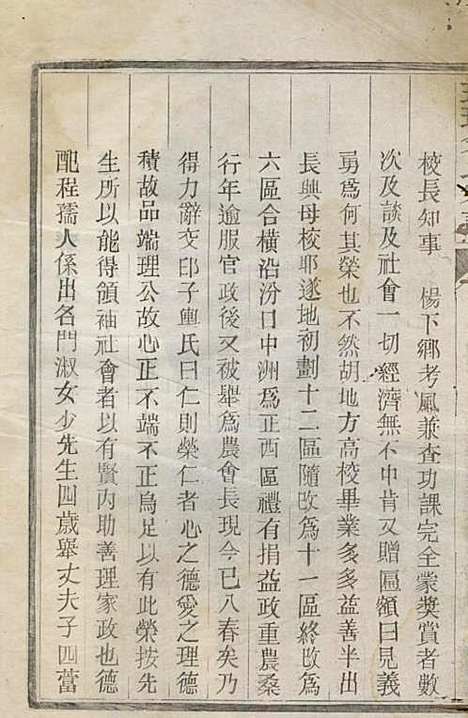 校長知事　楊下鄉考風兼查功課完全蒙獎賞者數
次及談及社會一切經濟無不中肯又贈區額曰見義
勇為何其榮也不然胡地方高校畢業多多益善半出
長興母校耶遂地初劃十二區隨改為十一區終改為
六區合橫沿汾口中洲為正西區禮有捐益政重農桑
行年逾服官政後又被舉為農會長現今已八春矣乃
得力辭交卭子輿氏曰仁則榮仁者心之德愛之理德
積故品端理公故心正不端不正烏足以有此榮按先
生所以能得領袖社會者以有賢內助善理家政也德
配程孺人係出名門淑女少先生四歲舉丈夫子四蕾